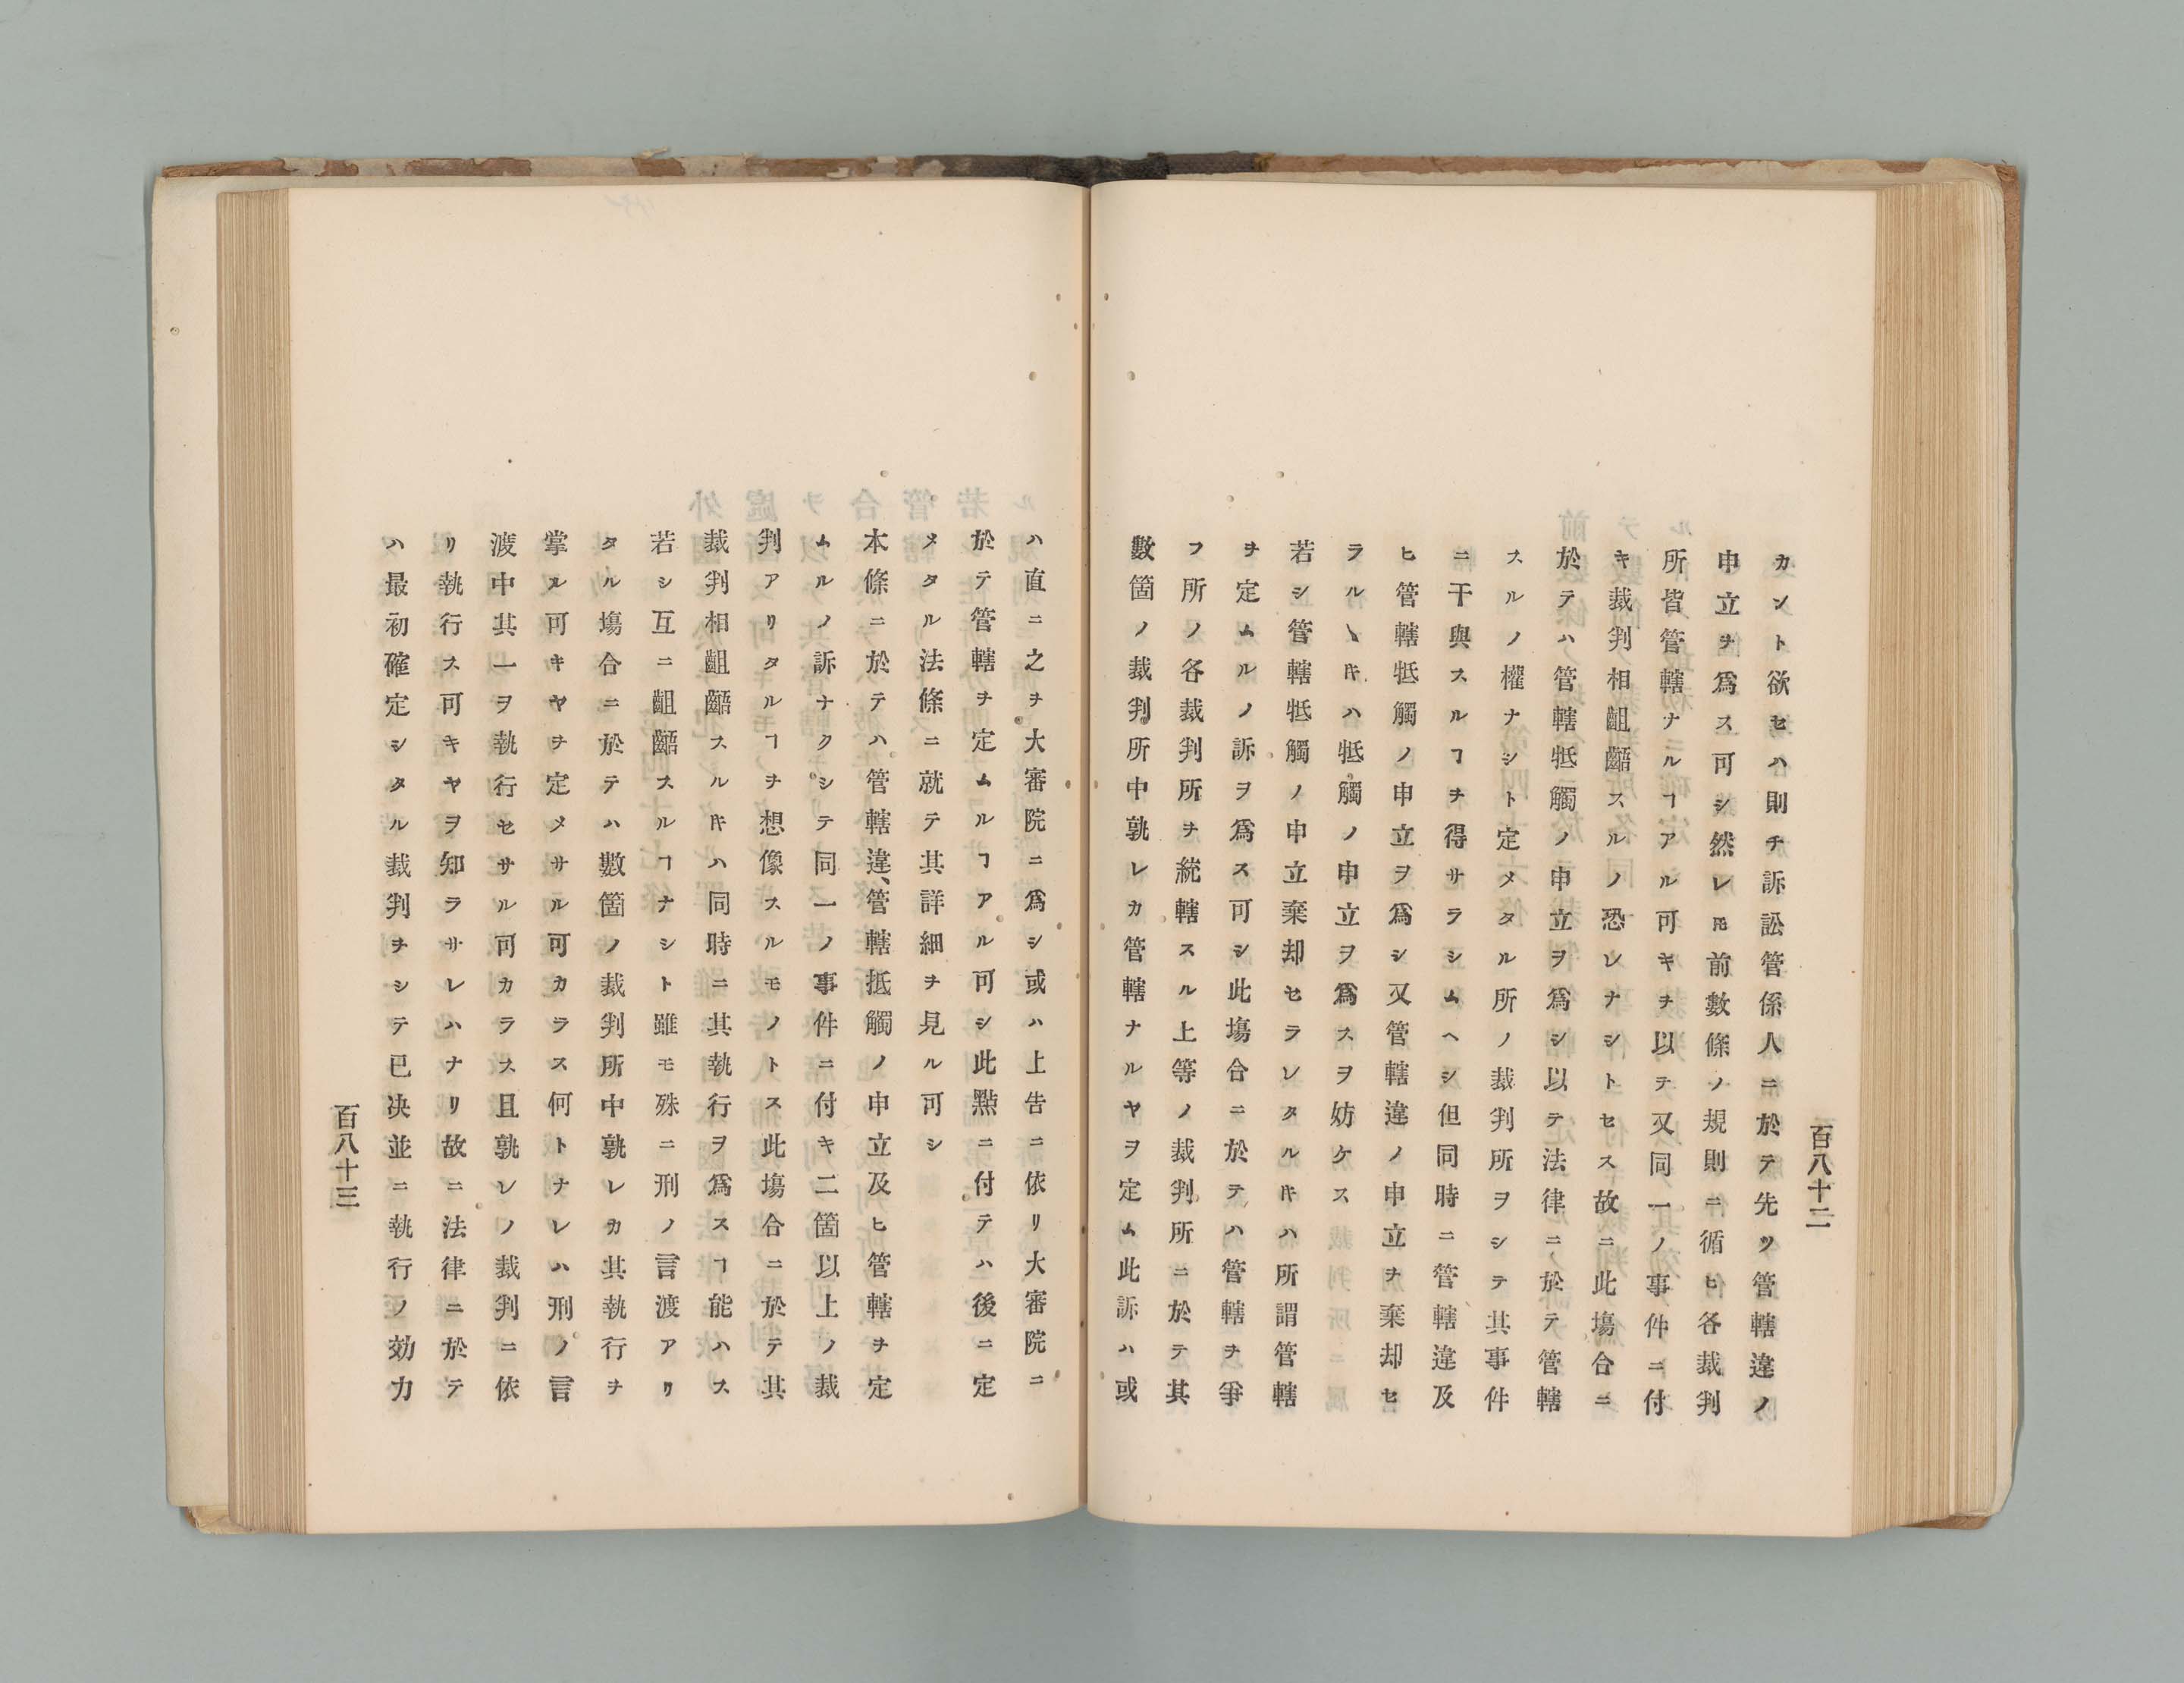 百八十二
カント欲セハ則チ訴訟管係人ニ於テ先ツ管轄違ノ
申立ヲ爲ス可シ然レ𪜈前數條ノ規則ニ循ヒ各裁判
所皆管轄ナルヿアル可キヲ以テ又同一ノ事件ニ付
キ裁判相齟齬スルノ恐レナシトセス故ニ此塲合ニ
於テハ管轄牴觸ノ申立ヲ爲シ以テ法律ニ於テ管轄
スルノ權ナシト定メタル所ノ裁判所ヲシテ其事件
ニ干與スルヿヲ得サラシムヘシ但同時ニ管轄違及
ヒ管轄牴觸ノ申立ヲ爲シ又管轄違ノ申立ヲ棄却セ
ラルヽ𬼀ハ牴觸ノ申立ヲ爲スヲ妨ケス
若シ管轄牴觸ノ申立棄却セラレタル𬼀ハ所謂管轄
ヲ定ムルノ訴ヲ爲ス可シ此塲合ニ於テハ管轄ヲ爭
フ所ノ各裁判所ヲ統轄スル上等ノ裁判所ニ於テ其
數箇ノ裁判所中孰レカ管轄ナルヤヲ定ム此訴ハ或
ハ直ニ之ヲ大審院ニ爲シ或ハ上告ニ依リ大審院ニ
於テ管轄ヲ定ムルヿアル可シ此點ニ付テハ後ニ定
メタル法條ニ就テ其詳細ヲ見ル可シ
本條ニ於テハ管轄違、管轄抵觸ノ申立及ヒ管轄ヲ定
ムルノ訴ナクシテ同一ノ事件ニ付キ二箇以上ノ裁
判アリタルヿヲ想像スルモノトス此塲合ニ於テ其
裁判相齟齬スル𬼀ハ同時ニ其執行ヲ爲スヿ能ハス
若シ互ニ齟齬スルヿナシト雖モ殊ニ刑ノ言渡アリ
タル塲合ニ於テハ數箇ノ裁判所中孰レカ其執行ヲ
掌ル可キヤヲ定メサル可カラス何トナレハ刑ノ言
渡中其一ヲ執行セサル可カラス且孰レノ裁判ニ依
リ執行ス可キヤヲ知ラサレハナリ故ニ法律ニ於テ
ハ最初確定シタル裁判ヲシテ已决並ニ執行ノ効力
百八十三